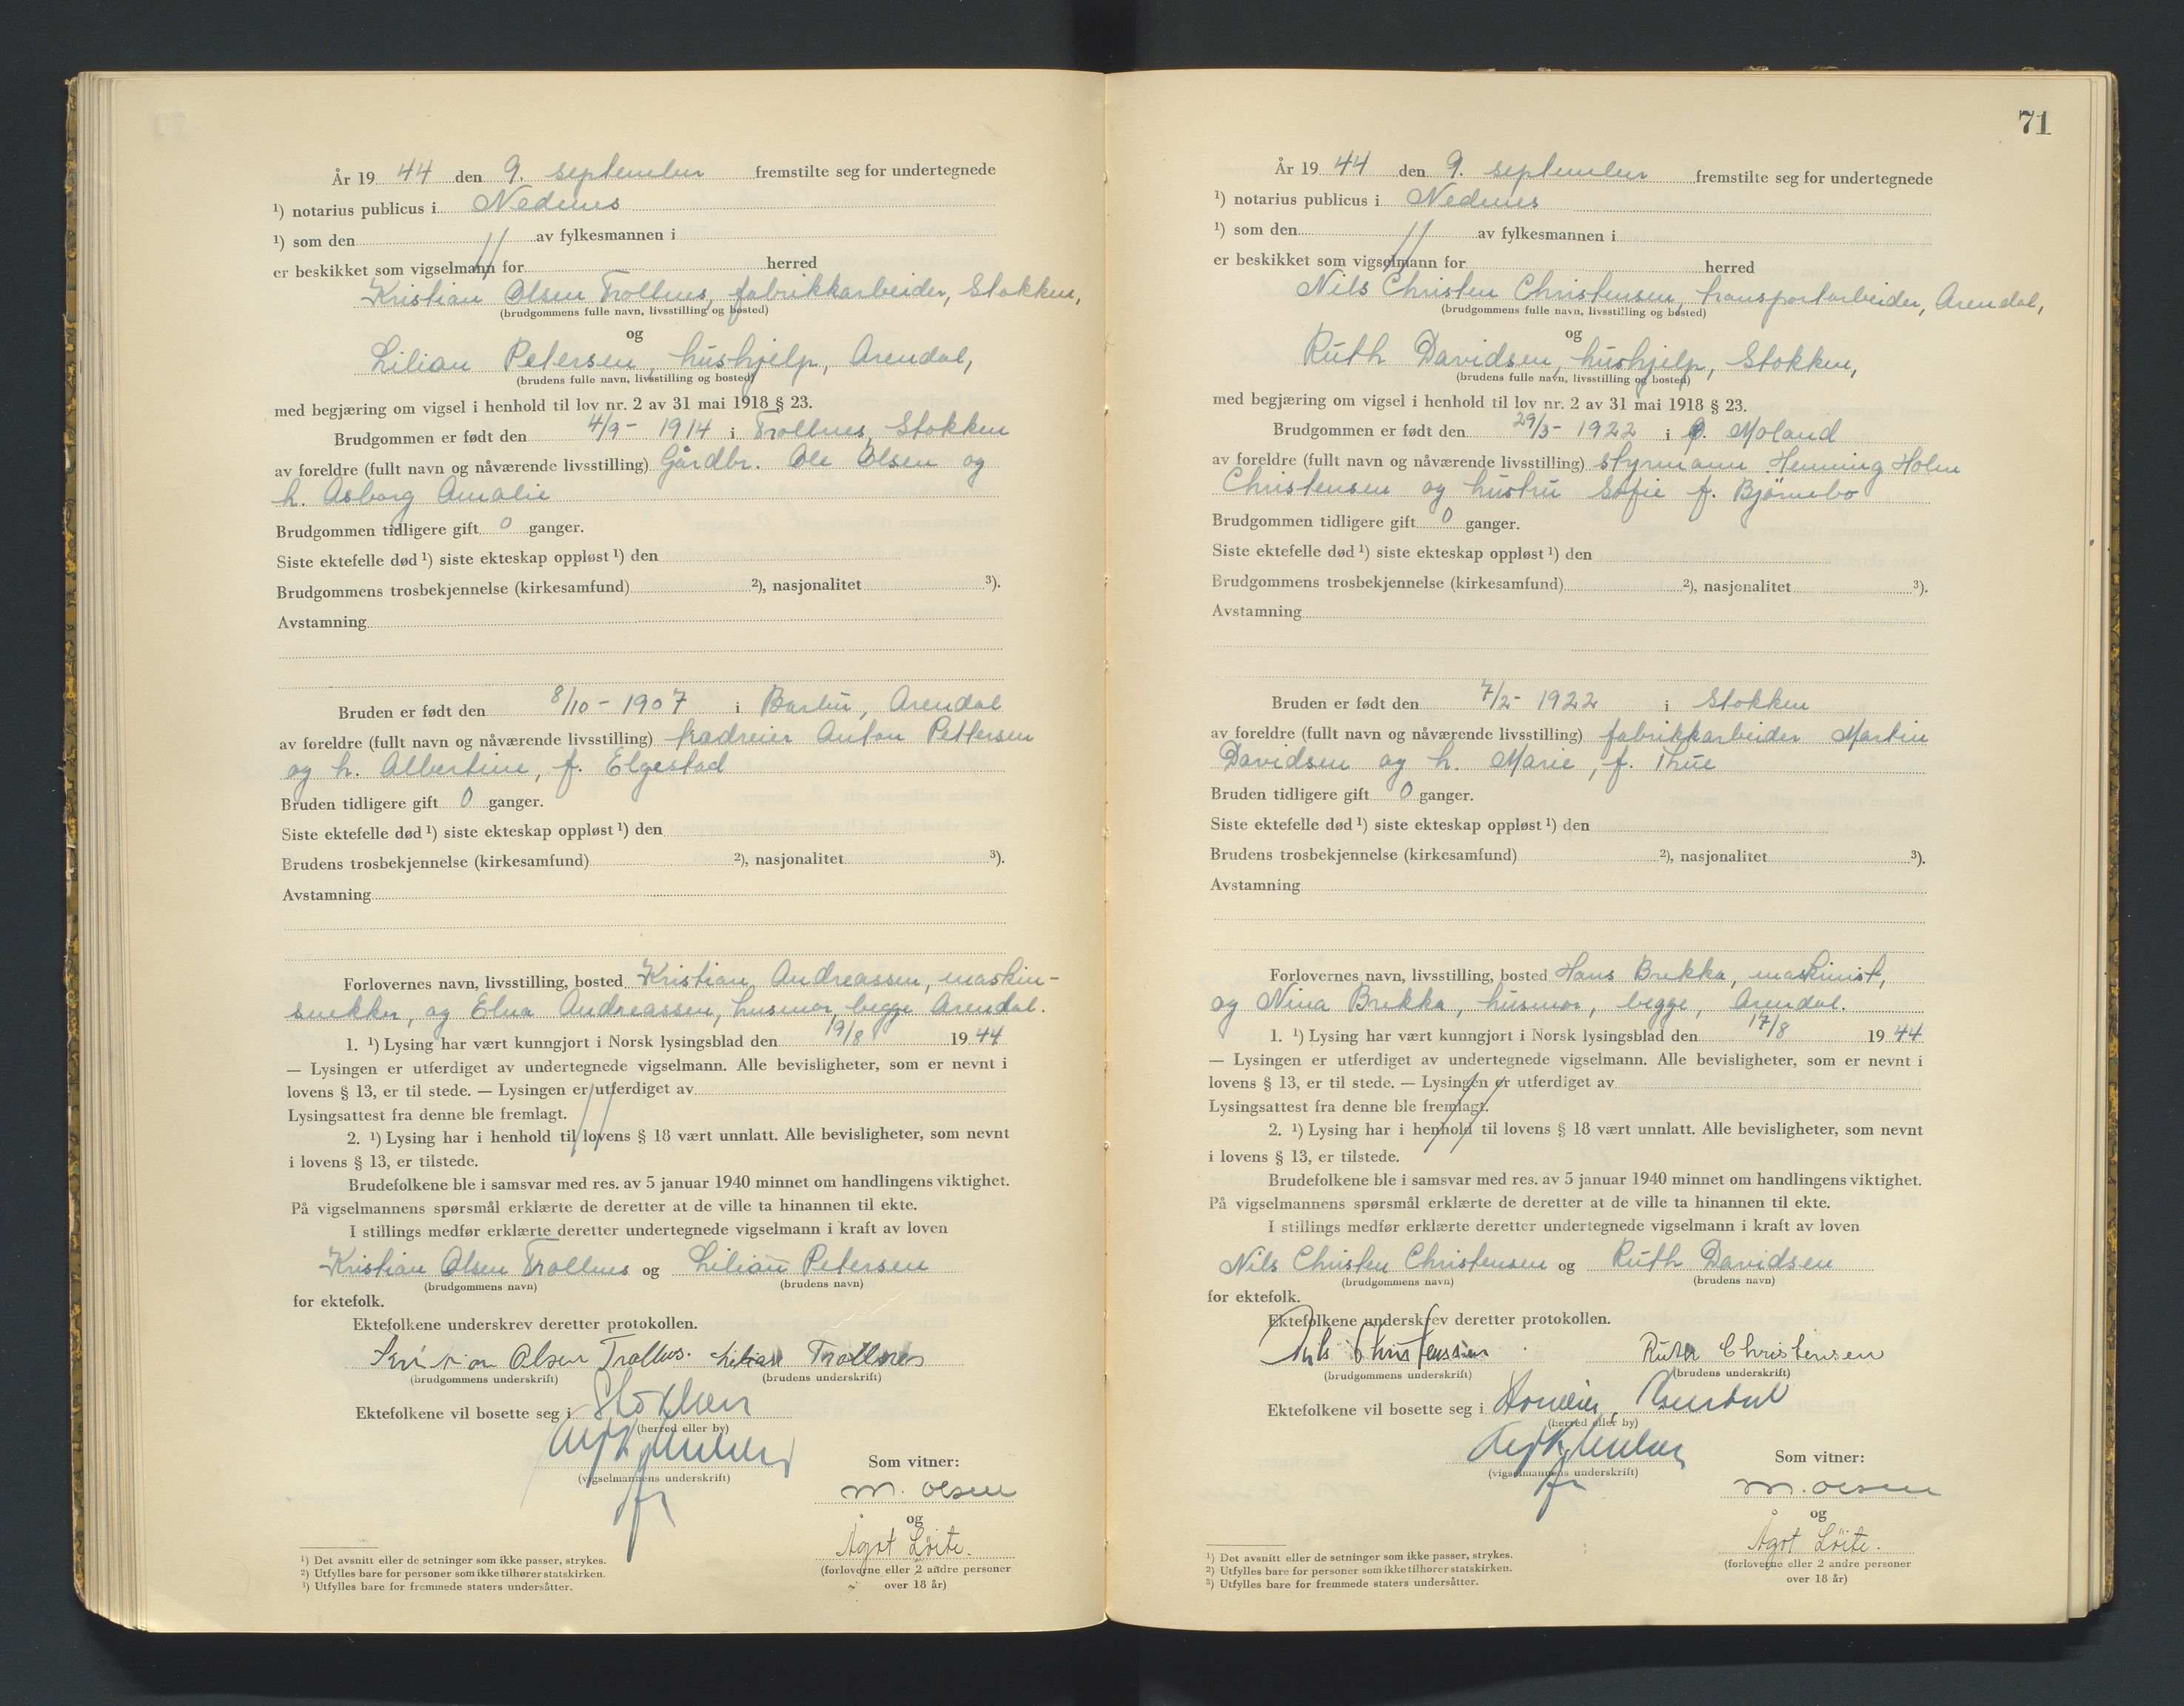 År 19 44 den 9. september fremstilte seg for undertegnede
¹) notarius publicus i Nedenes
¹) som den av fylkesmannen i
er beskikket som vigselmann for herred
Kristian Olsen Trollnes, fabrikkarbeider, Stokken,
(brudgommens fulle navn, livsstilling og bosted)
og
Lilian Petersen, hushjelp, Arendal,
(brudens fulle navn, livsstilling og bosted)
med begjæring om vigsel i henhold til lov nr. 2 av 31 mai 1918 § 23.
Brudgommen er født den 4/9 - 1914 i Trollnes, Stokken
av foreldre (fullt navn og nåværende livsstilling) Gårdbr. Ole Olsen og
h. Asborg Amalie
Brudgommen tidligere gift 0 ganger.
Siste ektefelle død ¹) siste ekteskap oppløst ¹) den
Brudgommens trosbekjennelse (kirkesamfund) ²), nasjonalitet ³).
Avstamning
Bruden er født den 8/10 - 1907 i Barbu, Arendal
av foreldre (fullt navn og nåværende livsstilling) trædreier Anton Pettersen
og h. Albertine, f. Elgestad
Bruden tidligere gift 0 ganger.
Siste ektefelle død ¹) siste ekteskap oppløst ¹) den
Brudens trosbekjennelse (kirkesamfund) ²), nasjonalitet ³).
Avstamning
Forlovernes navn, livsstilling, bosted Kristian Andreassen, maskin-
snekker, og Elna Andreassen, husmor, begge Arendal.
1. ¹) Lysing har vært kunngjort i Norsk lysingsblad den 19/8 19 44
— Lysingen er utferdiget av undertegnede vigselmann. Alle bevisligheter, som er nevnt i
lovens § 13, er til stede. — Lysingen er utferdiget av
Lysingsattest fra denne ble fremlagt.
2. ¹) Lysing har i henhold til lovens § 18 vært unnlatt. Alle bevisligheter, som nevnt
i lovens § 13, er tilstede.
Brudefolkene ble i samsvar med res. av 5 januar 1940 minnet om handlingens viktighet.
På vigselmannens spørsmål erklærte de deretter at de ville ta hinannen til ekte.
I stillings medfør erklærte deretter undertegnede vigselmann i kraft av loven
Kristian Olsen Trollnes og Lilian Petersen
(brudgommens navn) (brudens navn)
for ektefolk.
Ektefolkene underskrev deretter protokollen.
Kristian Olsen Trollnes. Lilian Trollnes
(brudgommens underskrift) (brudens underskrift)
Ektefolkene vil bosette seg i Stokken
(herred eller by)
(vigselmannens underskrift) Som vitner:
M. Olsen
og
Ågot Löite.
(forloverne eller 2 andre personer
over 18 år)
¹) Det avsnitt eller de setninger som ikke passer, strykes.
²) Utfylles bare for personer som ikke tilhører statskirken.
³) Utfylles bare for fremmede staters undersåtter.
71
År 19 44 den 9. september fremstilte seg for undertegnede
¹) notarius publicus i Nedenes
¹) som den av fylkesmannen i
er beskikket som vigselmann for herred
Nils Christen Christensen, transportarbeider, Arendal,
(brudgommens fulle navn, livsstilling og bosted)
og
Ruth Davidsen, hushjelp, Stokken,
(brudens fulle navn, livsstilling og bosted)
med begjæring om vigsel i henhold til lov nr. 2 av 31 mai 1918 § 23.
Brudgommen er født den 29/3 - 1922 i Ø. Moland
av foreldre (fullt navn og nåværende livsstilling) styrmann Henning Holm
Christensen og hustru Sofie f. Bjørnebo
Brudgommen tidligere gift 0 ganger.
Siste ektefelle død ¹) siste ekteskap oppløst ¹) den
Brudgommens trosbekjennelse (kirkesamfund) ²), nasjonalitet ³).
Avstamning
Bruden er født den 7/2 - 1922 i Stokken
av foreldre (fullt navn og nåværende livsstilling) fabrikkarbeider Martin
Davidsen og h. Marie, f. Thue
Bruden tidligere gift 0 ganger.
Siste ektefelle død ¹) siste ekteskap oppløst ¹) den
Brudens trosbekjennelse (kirkesamfund) ²), nasjonalitet ³).
Avstamning
Forlovernes navn, livsstilling, bosted Hans Brekka, maskinist,
og Nina Brekka, husmor, begge, Arendal.
1. ¹) Lysing har vært kunngjort i Norsk lysingsblad den 17/8 19 44
— Lysingen er utferdiget av undertegnede vigselmann. Alle bevisligheter, som er nevnt i
lovens § 13, er til stede. — Lysingen er utferdiget av
Lysingsattest fra denne ble fremlagt.
2. ¹) Lysing har i henhold til lovens § 18 vært unnlatt. Alle bevisligheter, som nevnt
i lovens § 13, er tilstede.
Brudefolkene ble i samsvar med res. av 5 januar 1940 minnet om handlingens viktighet.
På vigselmannens spørsmål erklærte de deretter at de ville ta hinannen til ekte.
I stillings medfør erklærte deretter undertegnede vigselmann i kraft av loven
Nils Christen Christensen og Ruth Davidsen
(brudgommens navn) (brudens navn)
for ektefolk.
Ektefolkene underskrev deretter protokollen.
Nils Christensen Ruth Christensen
(brudgommens underskrift) (brudens underskrift)
Ektefolkene vil bosette seg i Arendal
(herred eller by)
(vigselmannens underskrift) Som vitner:
M. Olsen
og
Ågot Löite.
(forloverne eller 2 andre personer
over 18 år)
¹) Det avsnitt eller de setninger som ikke passer, strykes.
²) Utfylles bare for personer som ikke tilhører statskirken.
³) Utfylles bare for fremmede staters undersåtter.